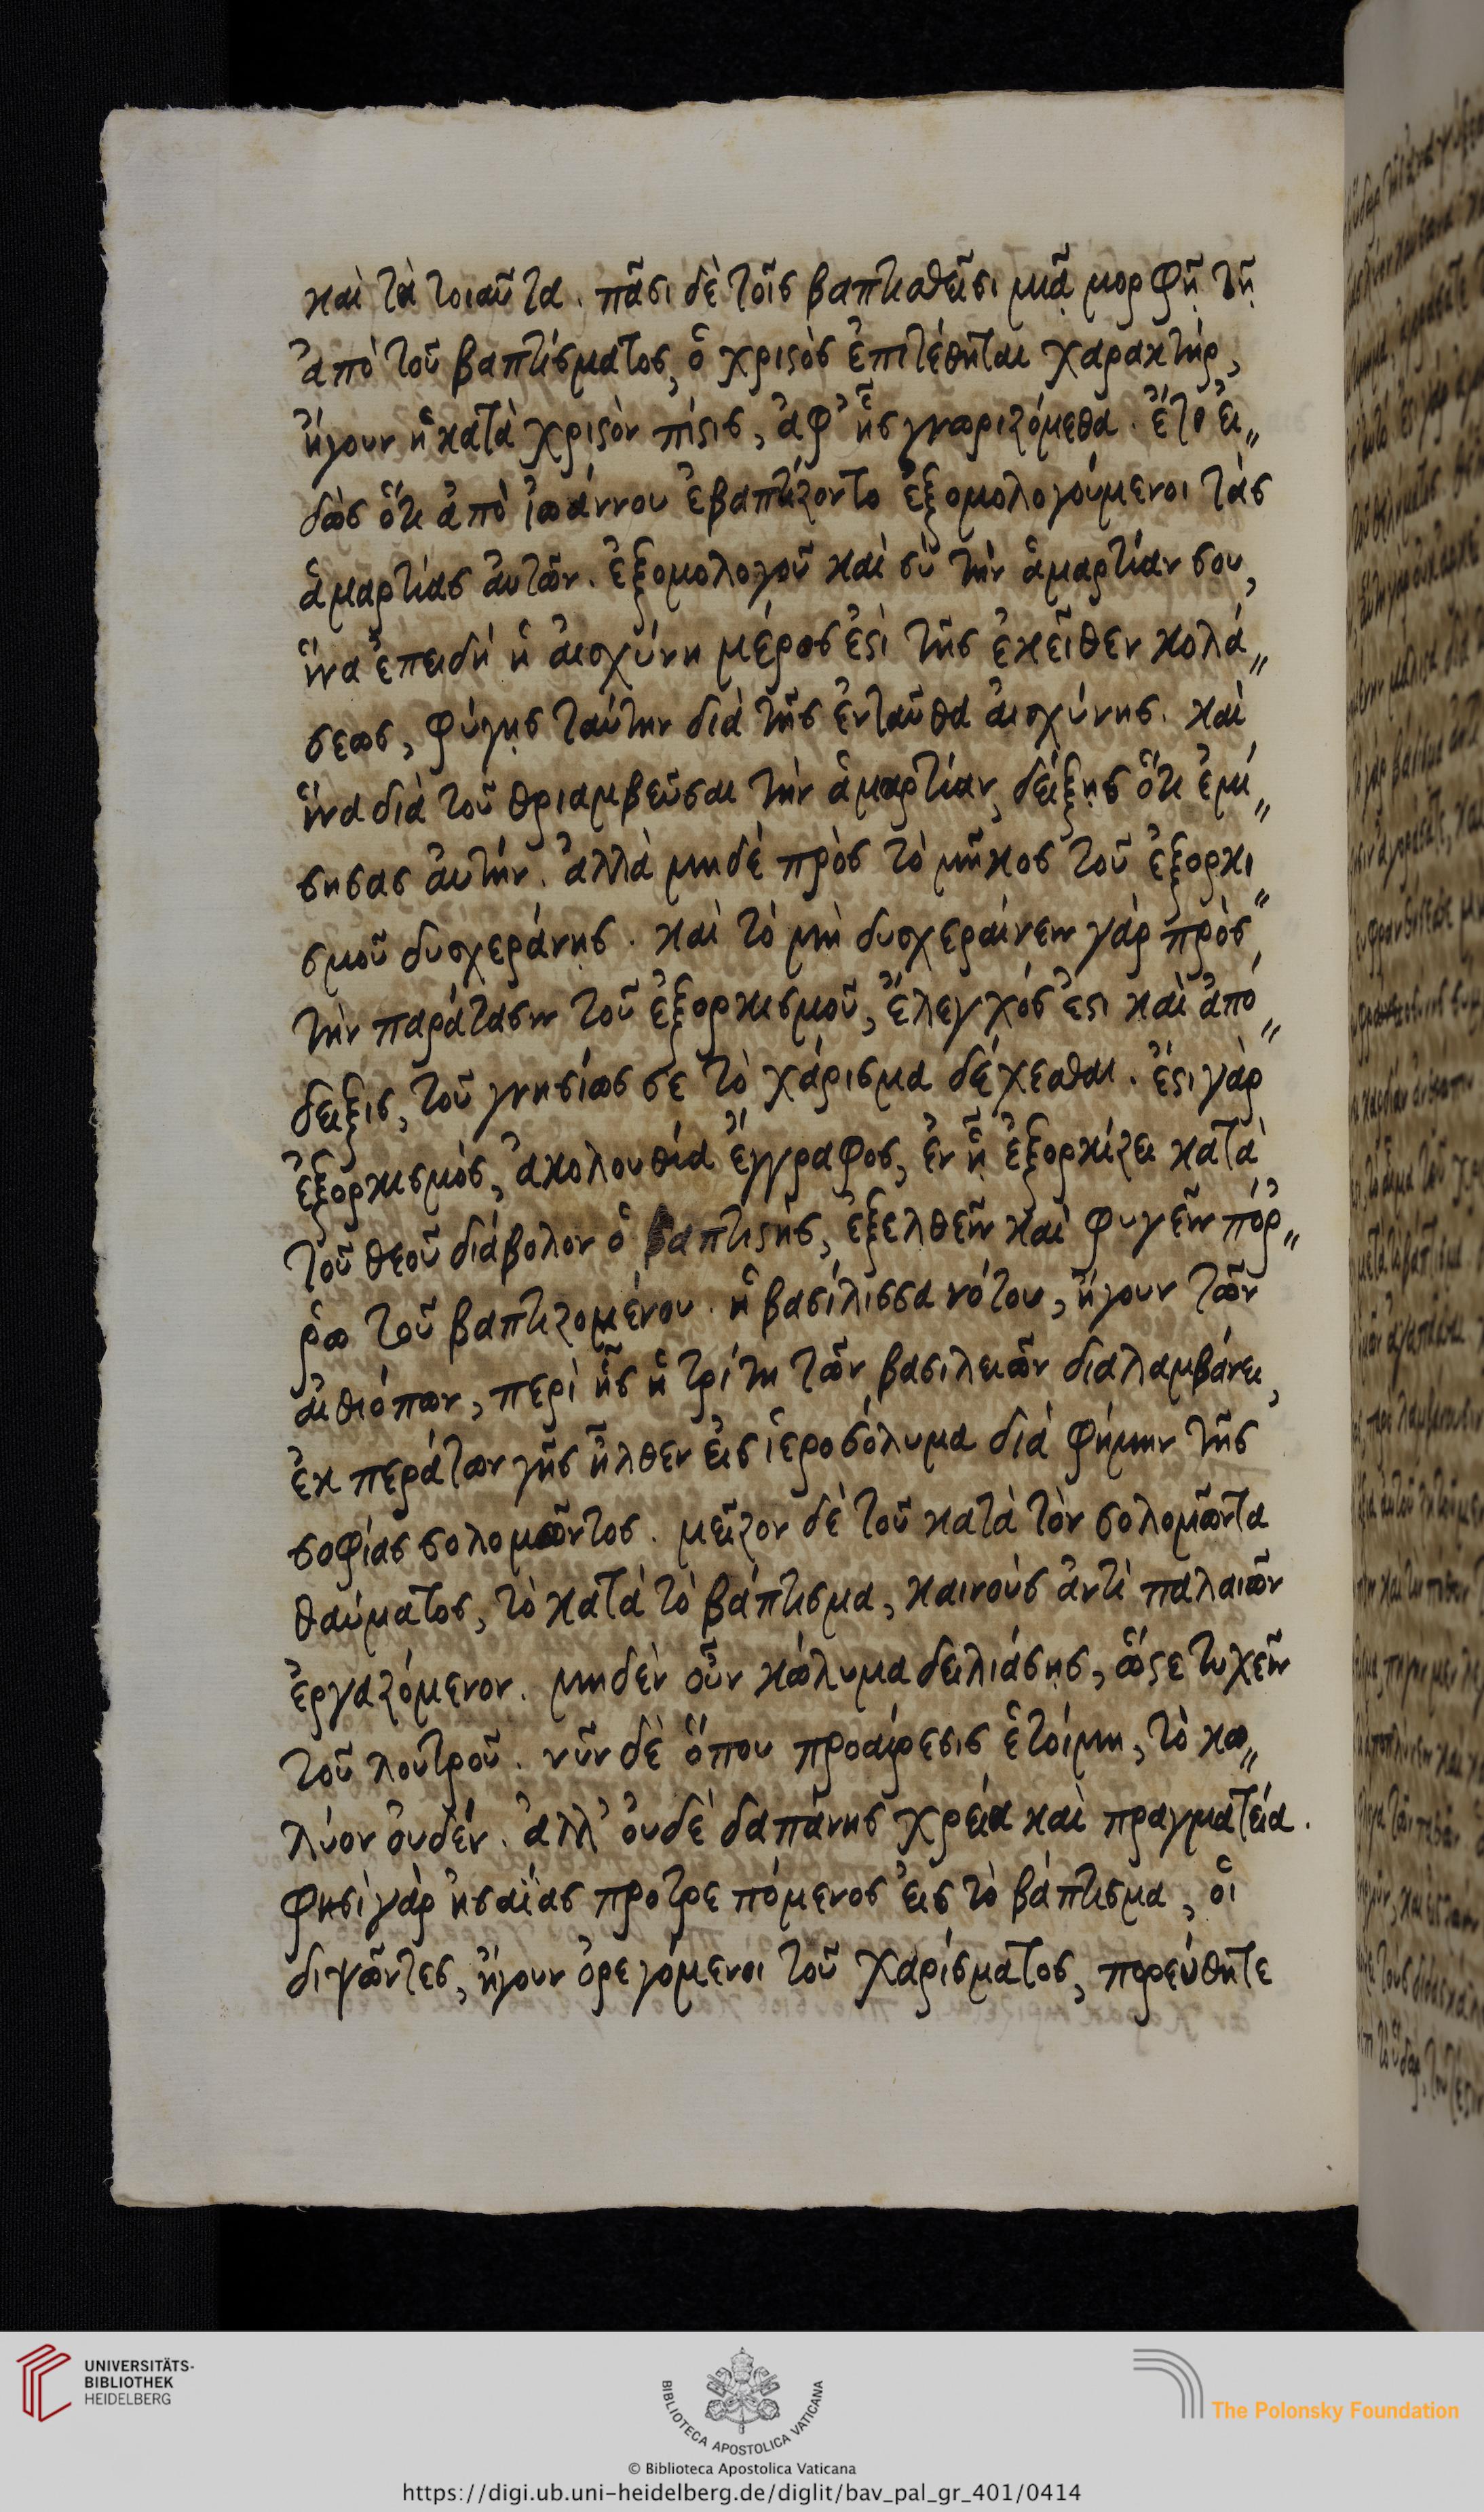 καὶ τὰ τοιαῦτα. πᾶσι δὲ τοῖς βαπτισθεῖσι μιᾷ μορφῇ τῇ
ἀπὸ τοῦ βαπτίσματος, ὁ χριϛὸς ἐπιτέθηται χαρακτήρ,
ἤγουν ἡ κατὰ χριϛὸν πίϛις, ἀφ' ἧς γνωριζόμεθα. ἔτι εἰ„
δὼς ὅτι ἀπὸ ἰωάννου ἐβαπτίζοντο ἐξομολογούμενοι τὰς
ἁμαρτίας ἀυτῶν. ἐξομολογοῦ καὶ σὺ τὴν ἁμαρτίαν σου,
ἵνα ἐπειδὴ ἡ ἀισχύνη μέρος ἐϛὶ τῆς ἐκεῖθεν κολά„
σεως, φύγῃς ταύτην διὰ τῆς ἐνταῦθα ἀισχύνης. καὶ
ἵνα διὰ τοῦ θριαμβεῦσαι τὴν ἁμαρτίαν, δείξῃς ὅτι ἐμί„
σησας ἀυτήν. ἀλλὰ μηδὲ πρὸς τὸ μῆκος τοῦ ἐξορκι„
σμοῦ δυσχεράνῃς. καὶ τὸ μὴ δυσχεραίνειν γὰρ πρὸς
τὴν παράτασιν τοῦ ἐξορκισμοῦ, ἔλεγχός ἐϛι καὶ ἀπό„
δειξις, τοῦ γνησίως σε τὸ χάρισμα δέχεσθαι. ἔϛι γὰρ
ἐξορκισμὸς, ἀκολουθία ἔγγραφος, ἐν ᾗ ἐξορκίζει κατὰ
τοῦ θεοῦ διάβολον ὁ βαπτιϛὴς, ἐξελθεῖν καὶ φυγεῖν πόρ„
ῥω τοῦ βαπτιζομένου. ἡ βασίλισσα νότου, ἤγουν τῶν
ἀιθιόπων, περὶ ἧς ἡ τρίτη τῶν βασιλειῶν διαλαμβάνει,
ἐκ περάτων γῆς ἦλθεν εἰς ἱεροσόλυμα διὰ φήμην τῆς
σοφίας σολομῶντος. μεῖζον δὲ τοῦ κατὰ τὸν σολομῶντα
θαύματος, τὸ κατὰ τὸ βάπτισμα, καινοὺς ἀντὶ παλαιῶν
ἐργαζόμενον. μηδὲν οὖν κώλυμα δειλιάσῃς, ὥϛε τυχεῖν
τοῦ λουτροῦ. νῦν δὲ ὅπου προαίρεσις ἑτοίμη, τὸ κω„
λύον ὀυδέν. ἀλλ' ὀυδὲ δαπάνης χρεία καὶ πραγματεία.
φησὶ γὰρ ἡσαΐας προτρεπόμενος εἰς τὸ βάπτισμα, οἱ
διψῶντες, ἤγουν ὀρεγόμενοι τοῦ χαρίσματος, πορεύθητε
UNIVERSITÄTS-
BIBLIOTHEK
HEIDELBERG
BIBLIOTECA APOSTOLICA VATICANA
The Polonsky Foundation
© Biblioteca Apostolica Vaticana
https://digi.ub.uni-heidelberg.de/diglit/bav_pal_gr_401/0414